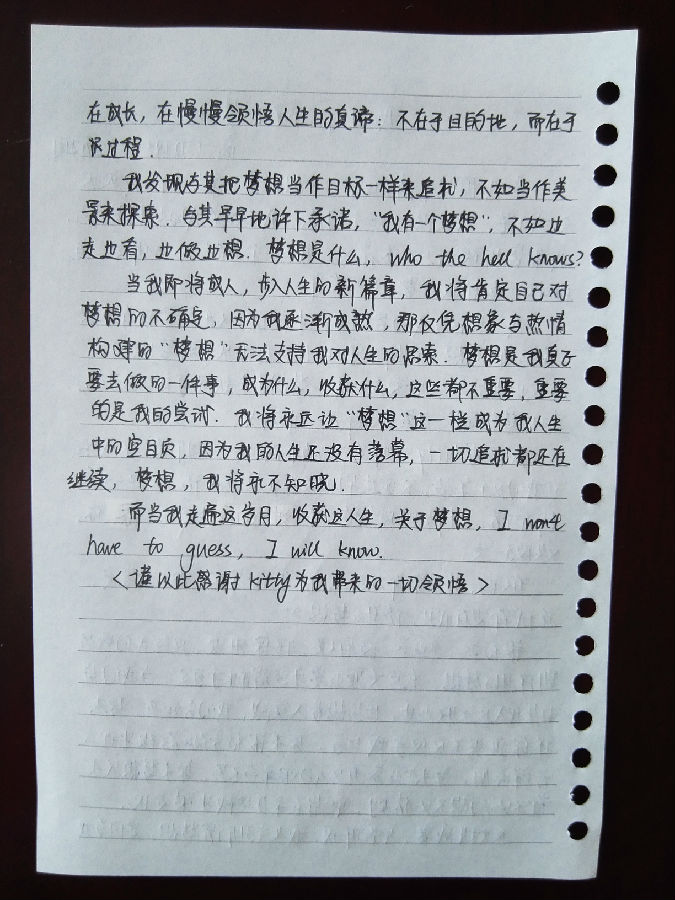 在成长，在慢慢领悟人生的真谛：不在于目的地，而在于
尽过程.
我发现与其把梦想当作目标一样来追扰，不如当作美
景来探索. 与其早早地许下承诺，“我有一个梦想”，不如边
走边看，边做边想. 梦想是什么，who the hell knows?
当我即将成人，步入人生的新篇章，我将肯定自己对
梦想的不确定，因为我逐渐成熟，那仅凭想象与热情
构建的“梦想”无法支持我对人生的思索. 梦想是我真正
要去做的一件事，成为什么，收获什么，这些都不重要，重要
的是我的尝试. 我将永远让“梦想”这一栏成为我人生
中的空白页，因为我的人生还没有落幕，一切追扰都还在
继续，梦想，我将永不知晓.
而当我走遍这岁月，收获这人生，关于梦想，I wont
have to guess, I will know.
<谨以此感谢kitty为我带来的一切领悟>